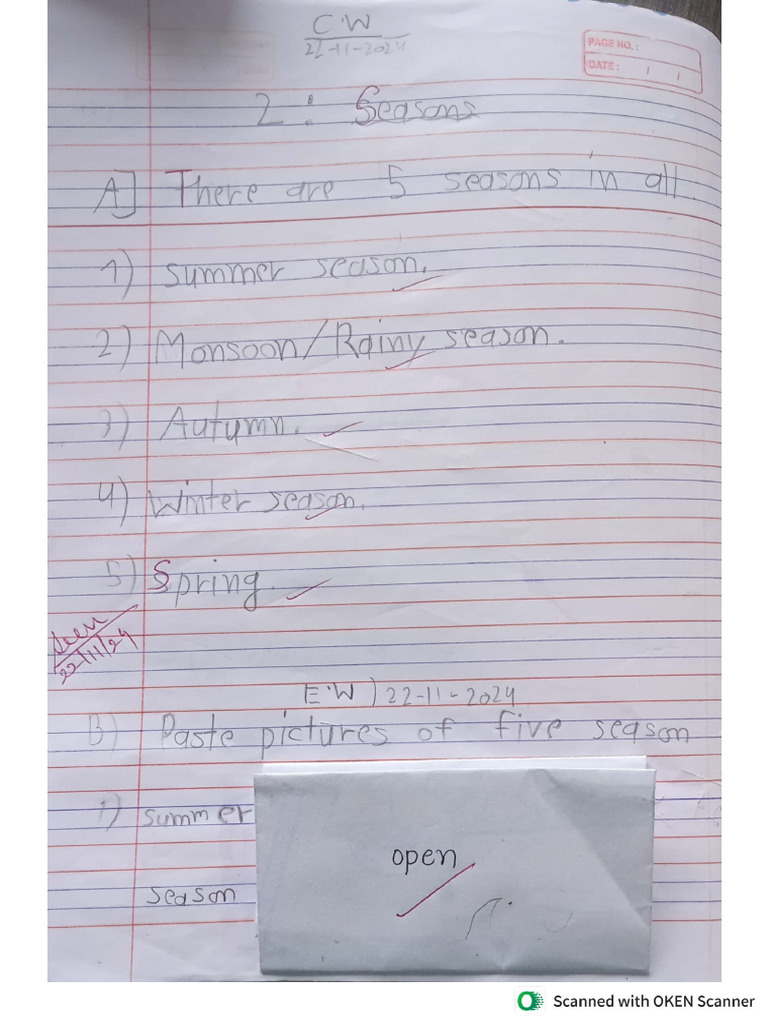 C.W
22-11-2024
PAGE NO.:
DATE: / /
2: Seasons
A] There are 5 seasons in all.
1) summer season.
2) Monsoon/Rainy season.
3) Autumn.
4) Winter season.
5) Spring
Seen
22/11/24
E.W) 22-11-2024
B) Paste pictures of five season
1) summer
open
season
Scanned with OKEN Scanner